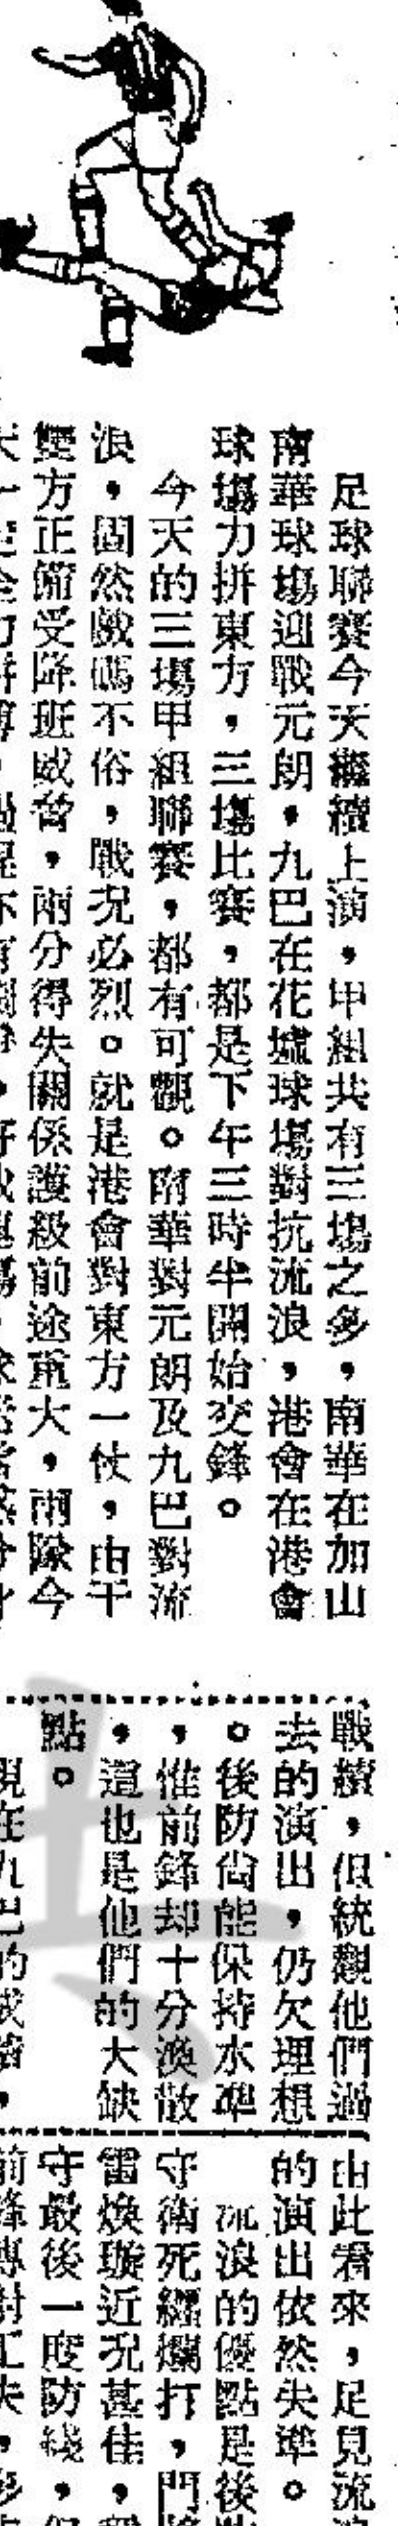 足球聯賽今天繼續上演，甲組共有三塲之多，南華在加山
南華球塲迎戰元朗，九巴在花墟球塲對抗流浪，港會在港會
球塲力拼東方，三塲比賽，都是下午三時半開始交鋒。
今天的三塲甲組聯賽，都有可觀。南華對元朗及九巴對流
浪，固然戲碼不俗，戰況必烈。就是港會對東方一仗，由于
雙方正備受降班威脅，兩分得失關係護級前途重大，兩隊今
戰績，但統觀他們過
去的演出，仍欠理想
。後防尙能保持水準
，惟前鋒却十分渙散
，這也是他們的大缺
點。
現在九巴的成績，
由此看來，足見流
的演出依然失準。
流浪的優點是後
守衛死纒爛打，門
雷煥璇近況甚佳，
守最後一度防綫，